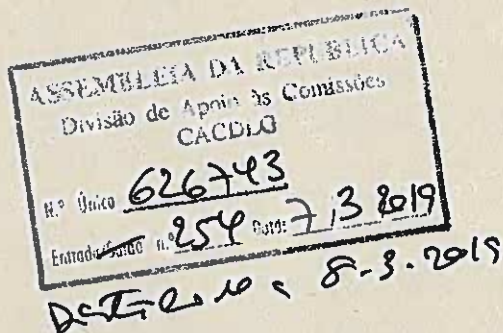 ASSEMBLEIA DA REPÚBLICA
Divisão de Apoio às Comissões
CACDLG
N.º Único 626743
Entrada/Saída n.º 254 Data: 7, 3 2019
8-3-2019